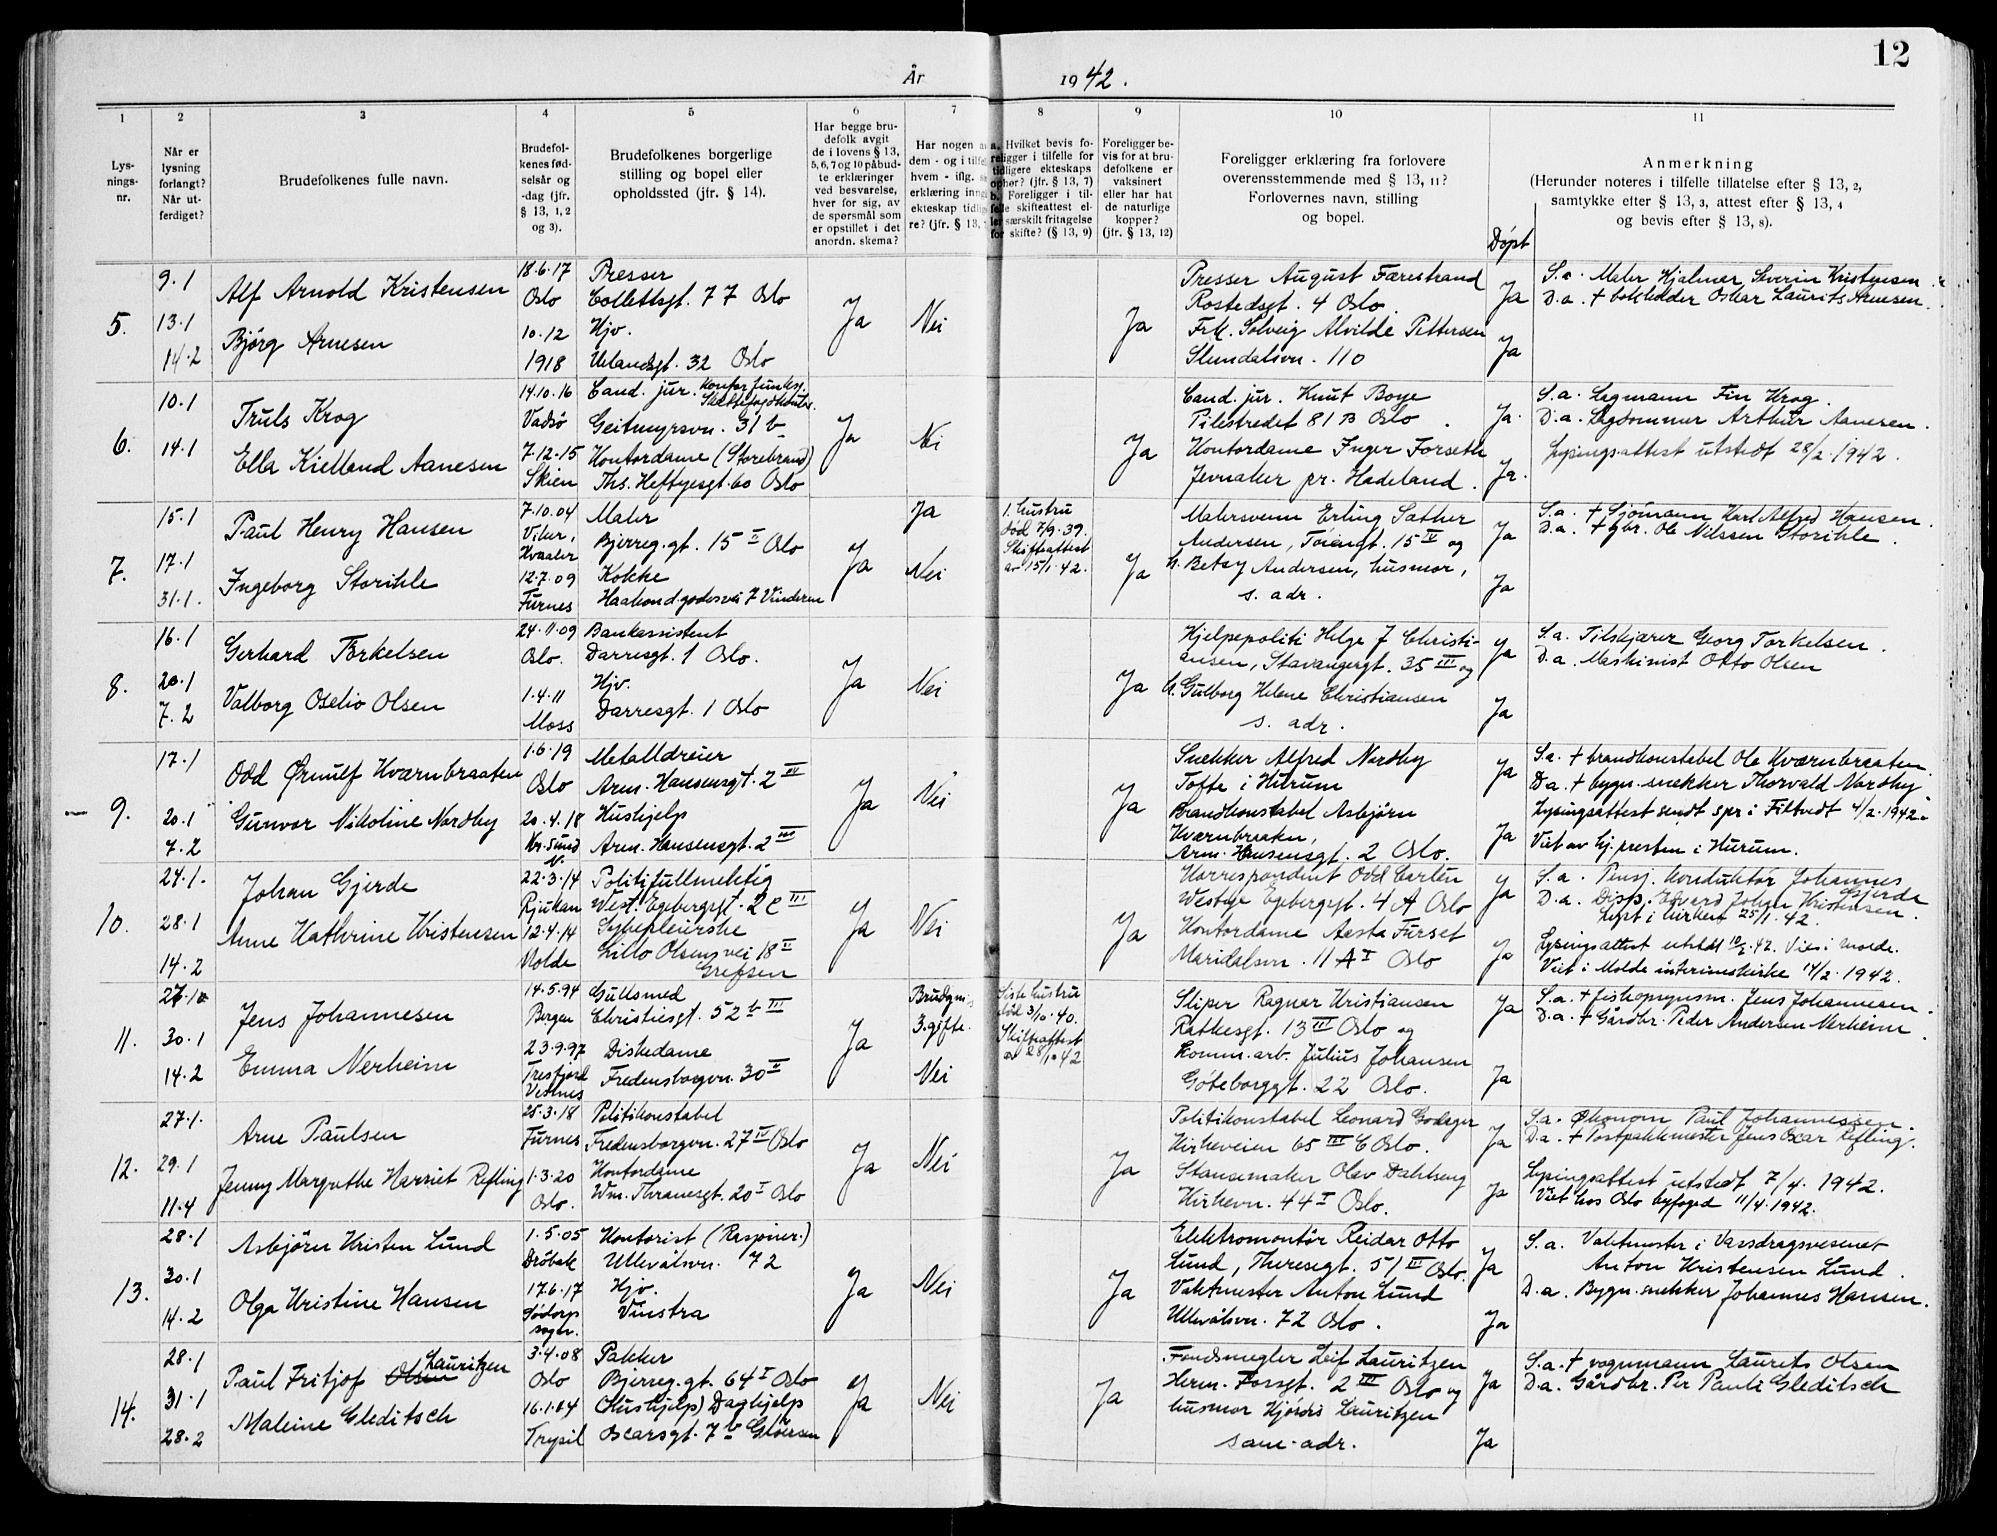 12
År 1942.
1 2 3 4 5 6 7 8 9 10 11
Lysningsnr.
Når er lysning forlangt? Når utferdiget?
Brudefolkenes fulle navn.
Brudefolkenes fødselsår og -dag (jfr. § 13, 1, 2 og 3).
Brudefolkenes borgerlige stilling og bopel eller opholdssted (jfr. § 14).
Har begge brudefolk avgit de i lovens § 13, 5, 6, 7 og 10 påbudte erklæringer ved besvarelse, hver for sig, av de spørsmål som er opstillet i det anordn. skema?
Har nogen dem - og i tilfel hvem - iflg. erklæring inn ekteskap tidlig re? (jfr. § 13,
a. Hvilket bevis foreligger i tilfelle for tidligere ekteskaps ophør? (jfr. § 13, 7) b. Foreligger i tilfelle skifteattest eller særskilt fritagelse for skifte? (§ 13, 9)
Foreligger bevis for at brudefolkene er vaksinert eller har hat de naturlige kopper? (jfr. § 13, 12)
Foreligger erklæring fra forlovere overensstemmende med § 13, 11? Forlovernes navn, stilling og bopel.
Døpt
Anmerkning (Herunder noteres i tilfelle tillatelse efter § 13, 2, samtykke efter § 13, 3, attest efter § 13, 4 og bevis efter § 13, 8).
5.
9.1
13.1
14.2
Alf Arnold Kristensen
Bjørg Arnesen
18.6.17
Oslo
10.12
1918
Presser
Collettsgt. 77 Oslo
Hjv.
Uelandsgt. 32 Oslo
Ja
Nei
Ja
Presser August Færestrand
Rostedsgt. 4 Oslo.
Frk. Solveig Alvilde Pettersen
110
Ja
Ja
S.a. Maler Hjalmer Severin Kristensen
D.a. + bokholder Oskar Laurits Arnesen.
6.
10.1
14.1
Truls Krog
Ella Kielland Aanesen
14.10.16
Vadsø
7.12.15
Skien
Cand. jur.
Geitmyrsvn. 31 b
Kontordame (Storebrand)
Ths. Heftyesgt. 60 Oslo
Ja
Nei
Ja
Cand. jur. Knut Boye
Pilestredet 81 B Oslo.
Kontordame Inger Forseth
Jevnaker pr. Hadeland.
Ja.
Ja.
S.a. Lagmann Fin Krog.
D.a. Lagdommer Arthur Aanesen.
Lysingsattest utstedt 28/2.1942.
7.
15.1
17.1
31.1.
Paul Henry Hansen
Ingeborg Storihle
7.10.04
Hvaler
12.7.09
Furnes
Maler
Bjerreg.gt. 15 II Oslo
Kokke
Haakond godesvei 7 Vinderen
Ja
Ja
Nei
1. hustru
død 7/9.39.
Skifteattest
av 15/1.42.
Ja
Malersvenn Erling Sather
Andersen, Tøiengt. 15 IV og
h. Betsy Andersen, husmor,
s. adr.
Ja
Ja
S.a. + Sjømann Karl Alfred Hansen.
D.a. + gbr. Ole Nilssen Storihle.
8.
16.1
20.1
7.2
Gerhard Torkelsen
Valborg Oselio Olsen
24.11.09
Oslo.
1.4.11
Moss
Bankassistent
Darresgt. 1 Oslo.
Hjv.
Darresgt. 1 Oslo
Ja
Nei
Ja
Hjelpepoliti Helge J Christi-
ansen, Stavangergt. 35 III og
h. Gulborg Helene Christiansen
s. adr.
Ja
Ja
S.a. Tilskjærer Georg Torkelsen.
D.a. Maskinist Otto Olsen
9.
17.1
20.1
7.2
Odd Ørnulf Kværnbraaten
Gunvor Nikoline Nordby
1.6.19
Oslo
20.4.18
Kr.sund
N.
Metalldreier
Arm. Hansensgt. 2 III
Hushjelp
Arm. Hansensgt. 2 III
Ja
Nei
Ja
Snekker Alfred Nordby
Tofte i Hurum
Brandkonstabel Asbjørn
Kværnbraaten,
Arm. Hansensgt. 2 Oslo.
Ja
Ja
S.a. + brandkonstabel Ole Kværnbraaten.
D.a. + bygn. snekker Thorvald Nordby
Lysingsattest sendt spr. i Filtvedt 4/2.1942.
Viet av hj.presten i Hurum.
10.
24.1.
28.1
14.2
Johan Gjerde
Anne Kathrine Kristensen
22.3.14
Rjukan
12.4.14
Molde
Politifullmektig
Vest. Egebergsgt. 2 c III
Sykepleierske
Lillo Olsens vei 18 II
Grefsen
Ja
Nei
Ja
Korrespondent Odd Carlén
Westye Egebergsgt. 4 A Oslo
Kontordame Aasta Furset
Maridalsvn. 11 A I Oslo
Ja
Ja
S.a. Pensj. konduktør Johannes
Gjerde
D.a. Disp. Edvard Johan Kristensen.
Lyst i kirken 25/1.42.
Lysingsattest utstedt 10/2.42. Vies i Molde.
Viet i Molde interimskirke 14/2.1942.
11.
30.1
14.2
Jens Johannesen
Emma Nerheim
14.5.94
Bergen
23.9.97
Tresfjord
Vestnes
Gullsmed
Christiesgt. 52 b III
Diskedame
Fredensborgvn. 30 II
Ja
Brudgm.
3. gifte.
Nei
Siste hustru
død 3/10.40.
Skifteattest
av 28/1.42
Sliper Ragnar Kristiansen
Ratkesgt. 13 III Oslo og
komm. arb. Julius Johansen
Gøteborggt. 22 Oslo.
Ja
Ja
S.a. + fiskoprgnsm. Jens Johannesen.
D.a. + Gårdbr. Peder Andersen Nerheim.
12.
27.1.
29.1
11.4
Arne Paulsen
Jenny Margrethe Harriet Refling
25.3.18
Furnes
1.3.20
Oslo.
Politikonstabel
Fredensborgvn. 27 IV Oslo
Kontordame
Wm. Thranesgt. 20 I Oslo
Ja
Nei
Ja
Politikonstabel Leonard Godager
Kirkeveien 65 III C Oslo.
Stansemaker Olav Dahlseng
Kirkevn. 44 I Oslo.
Ja
Ja
S.a. Økonom Paul Johannessen.
D.a. + Postpakkmester Jens Oscar Refling.
Lysingsattest utstedt 7/4.1942.
Viet hos Oslo byfoged 11/4.1942.
13.
28.1
30.1
14.2
Asbjørn Kristen Lund
Olga Kristine Hansen
1.5.05
Drøbak
17.6.17
Sødorp
sogn.
Kontorist (Rasjoner.)
Ullevålsvn. 72
Hjv.
Vinstra
Ja
Nei
Ja
Elektromontør Reidar Otto
Lund, Theresegt. 51 III Oslo.
Vaktmester Anton Lund
Ullevålsvn. 72 Oslo.
Ja
Ja
S.a. Vaktmester i Vassdragsvesenet
Anton Kristensen Lund.
D.a. Bygn. snekker Johannes Hansen.
14.
28.1
31.1
28.2
Paul Fritjof Olsen Lauritzen
Maleine Gleditsch
3.4.08
Oslo
16.1.04
Trysil
Pakker
Bjerreg.gt. 64 I Oslo
(Hushjelp) Daghjelp
Oscarsgt. 7 b
Ja
Nei
Ja
Fondsmegler Leif Lauritzen
Herm. Fossgt. 2 III Oslo og
husmor Hjørdis Lauritzen
same adr.
Ja
Ja
S.a. + vognmann Laurits Olsen
D.a. Gårdbr. Per Pauli Gleditsch